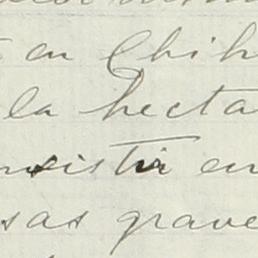 en Chih
la hecta
nsistir en
sas grave